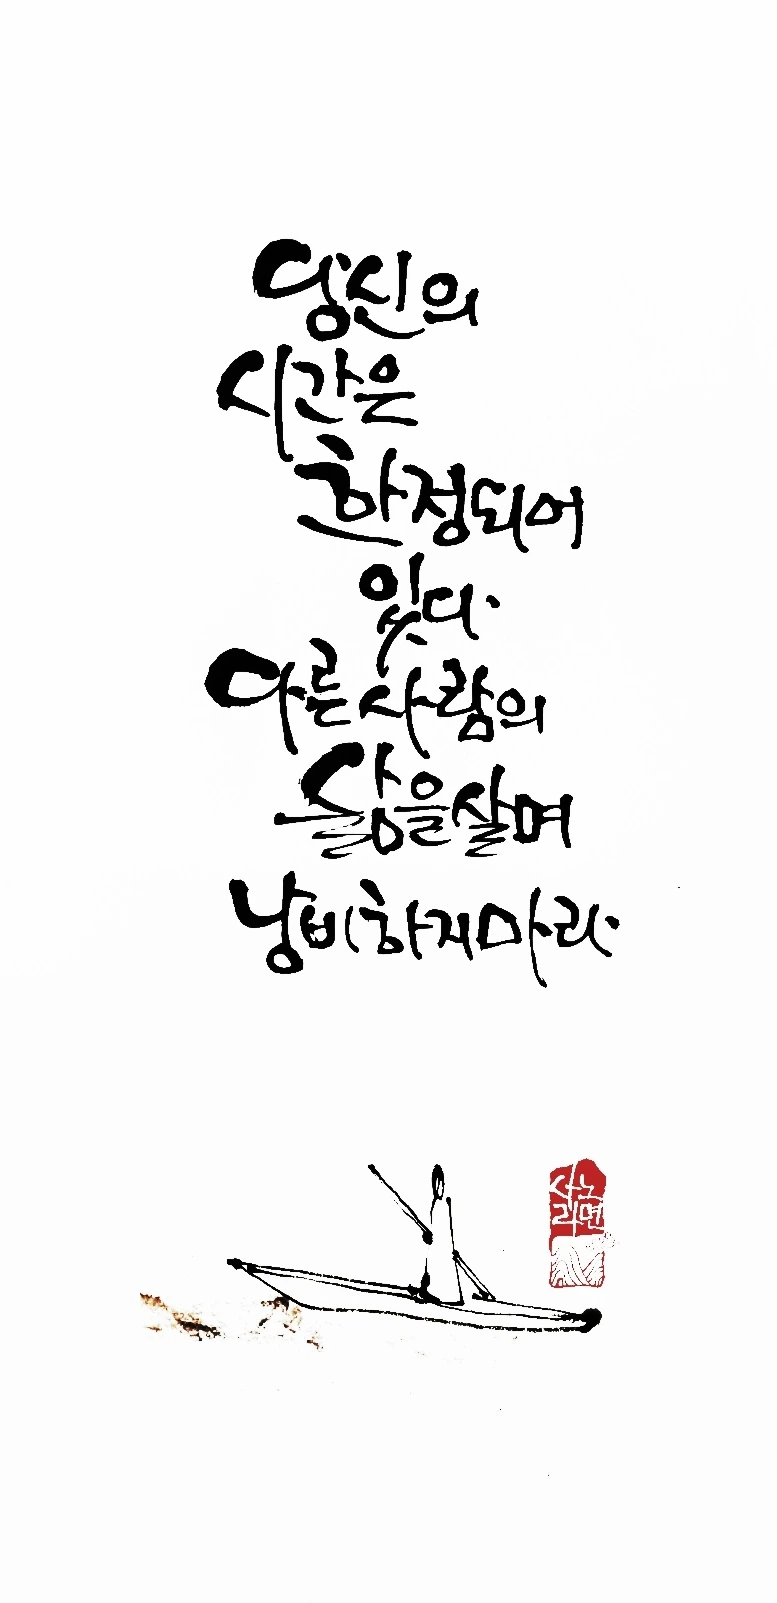 당신의
시간은
한정되어
있다.
다른 사람의
삶을 살며
낭비하지 마라.
사노
라면